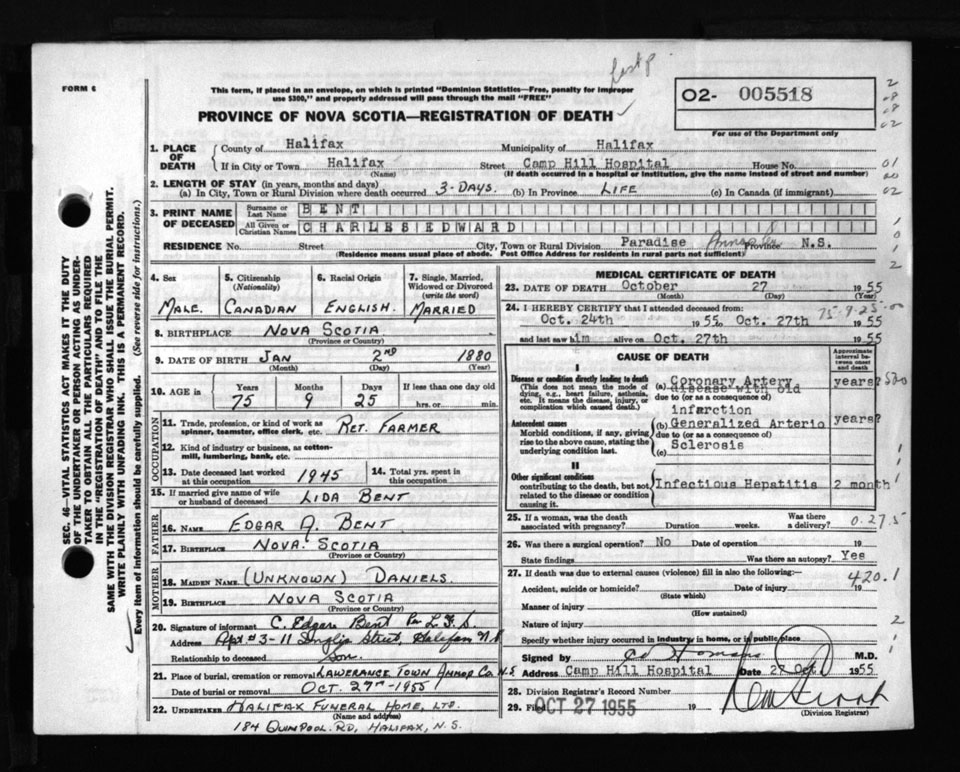 FORM 6
This form, if placed in an envelope, on which is printed "Dominion Statistics—Free, penalty for improper
use $300," and properly addressed will pass through the mail "FREE"
PROVINCE OF NOVA SCOTIA—REGISTRATION OF DEATH
02- 005518
For use of the Department only
SEC. 46—VITAL STATISTICS ACT MAKES IT THE DUTY
OF THE UNDERTAKER OR PERSON ACTING AS UNDER-
TAKER TO OBTAIN ALL THE PARTICULARS REQUIRED
IN THE "REGISTRATION OF DEATH" AND TO FILE THE
SAME WITH THE DIVISION REGISTRAR WHO SHALL ISSUE THE BURIAL PERMIT.
WRITE PLAINLY WITH UNFADING INK. THIS IS A PERMANENT RECORD.
Every item of information should be carefully supplied. (See reverse side for instructions.)
1. PLACE OF DEATH
County of Halifax Municipality of Halifax
If in City or Town Halifax Street Camp Hill Hospital House No.
(Name) (If death occurred in a hospital or institution, give the name instead of street and number)
2. LENGTH OF STAY (in years, months and days)
(a) In City, Town or Rural Division where death occurred 3-DAYS. (b) In Province LIFE (c) In Canada (if immigrant)
3. PRINT NAME OF DECEASED
Surname or Last Name BENT
All Given or Christian Names CHARLES EDWARD
RESIDENCE No. Street City, Town or Rural Division Paradise Province N.S.
(Residence means usual place of abode. Post Office Address for residents in rural parts not sufficient)
4. Sex
MALE.
5. Citizenship (Nationality)
CANADIAN
6. Racial Origin
ENGLISH.
7. Single, Married, Widowed or Divorced (write the word)
MARRIED
8. BIRTHPLACE NOVA SCOTIA
(Province or Country)
9. DATE OF BIRTH JAN 2ND 1880
(Month) (Day) (Year)
10. AGE in
Years Months Days If less than one day old
75 9 25 hrs. or min.
OCCUPATION
11. Trade, profession, or kind of work as spinner, teamster, office clerk, etc. RET. FARMER
12. Kind of industry or business, as cotton-mill, lumbering, bank, etc.
13. Date deceased last worked at this occupation 1945
14. Total yrs. spent in this occupation
15. If married give name of wife or husband of deceased LIDA BENT
FATHER
16. NAME EDGAR A. BENT
17. BIRTHPLACE NOVA SCOTIA
(Province or Country)
MOTHER
18. MAIDEN NAME (UNKNOWN) DANIELS.
19. BIRTHPLACE NOVA SCOTIA
(Province or Country)
20. Signature of informant C. Edgar Bent Per L.F.S.
Address Apt #3-11 Inglis Street, Halifax N.S
Relationship to deceased Son.
21. Place of burial, cremation or removal LAWERANCE TOWN ANNAP CO. N.S
Date of burial or removal OCT. 27TH-1955
22. UNDERTAKER HALIFAX FUNERAL HOME, LTD.
(Name and address)
184 QUINPOOL. RD, HALIFAX, N.S.
MEDICAL CERTIFICATE OF DEATH
23. DATE OF DEATH October 27 1955
(Month) (Day) (Year)
24. I HEREBY CERTIFY that I attended deceased from:
75-9-25
Oct. 24th 1955 to Oct. 27th 1955
and last saw him alive on Oct. 27th 1955
CAUSE OF DEATH
Approximate interval between onset and death
I
Disease or condition directly leading to death
(This does not mean the mode of dying, e.g., heart failure, asthenia, etc. It means the disease, injury, or complication which caused death.)
(a) Coronary Artery years?
disease with old
due to (or as a consequence of)
infarction
Antecedent causes
Morbid conditions, if any, giving rise to the above cause, stating the underlying condition last.
(b) Generalized Arterio years?
due to (or as a consequence of)
Sclerosis
(c)
II
Other significant conditions
contributing to the death, but not related to the disease or condition causing it.
Infectious Hepatitis 2 month
25. If a woman, was the death associated with pregnancy? Duration weeks. Was there a delivery?
0.27.5
26. Was there a surgical operation? No Date of operation 19
State findings Was there an autopsy? Yes
27. If death was due to external causes (violence) fill in also the following:—
420.1
Accident, suicide or homicide? Date of injury 19
(State which)
Manner of injury
(How sustained)
Nature of injury
Specify whether injury occurred in industry, in home, or in public place
Signed by M.D.
Address Camp Hill Hospital Date 27 Oct 1955
28. Division Registrar's Record Number
29. Filed OCT 27 1955 19
(Division Registrar)